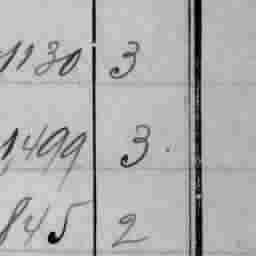 1130 3
1,499 3.
845 2